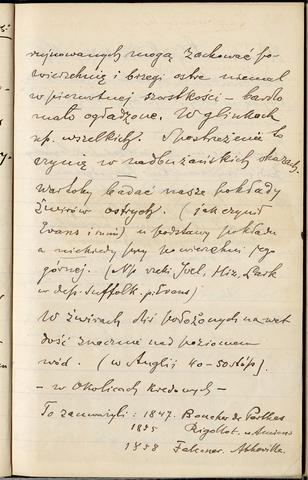 rujnowanych mogą zachować po-
wierzchnię i brzegi ostre niemal
w pierwotnej szorstkości – bardzo
mało ogładzone. W glinkach
np. wszelkich. Spostrzeżenie to
czynię w nadbużańskich okazach.
Wartoby badać nasze pokłady
żwirów ostrych. (jak czynił
Evans i inni) u podstawy pokładu
a niekiedy przy powierzchni jego
górnej. (Np rzeki Icel. Hiz, Lark
w dep. Suffolk. p. Evans)
W żwirach dziś położonych nawet
dość znacznie nad poziomem
wód. (w Anglji 40-50 stóp).
– w okolicach kredowych –
To zauważyli: 1847. Boucher de Perthes
1855 Rigollot. w Amiens
1858 Falconer. Abbeville.